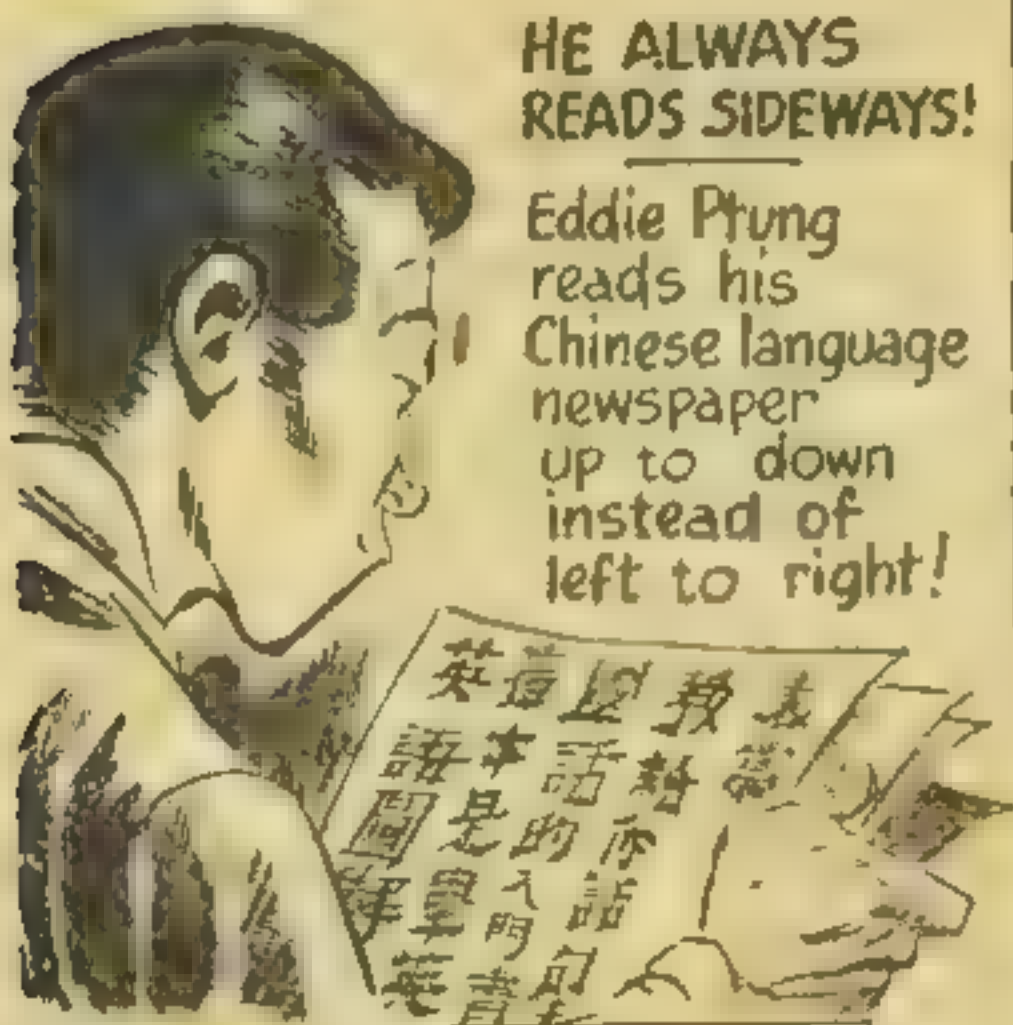 HE ALWAYS
READS SIDEWAYS!
Eddie Ptung
reads his
Chinese language
newspaper
up to down
instead of
left to right!
英 教
語 本 話
圖 是 的 你
單 學 入 話
門 句
英 書